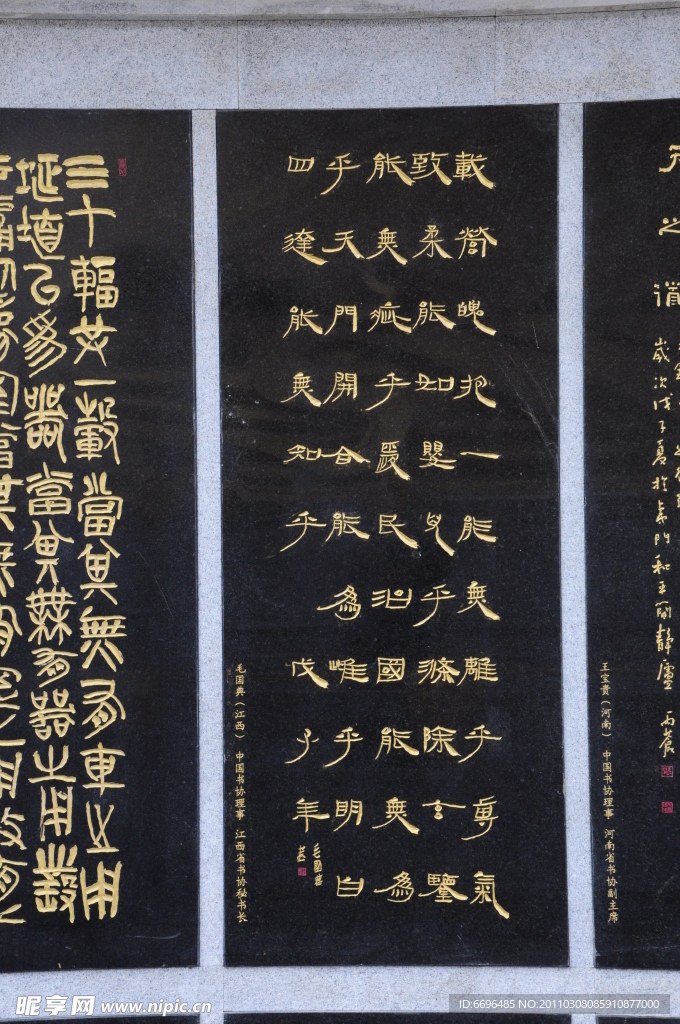 之道
王宝贵（河南） 中国书协理事 河南省书协副主席
載營魄抱一能無離乎專氣
致柔能如嬰兒乎滌除玄鑒
能無疵乎愛民治國能無為
乎天門開合能為雌乎明白
四達能無知乎 戊子年
毛國典書
毛国典（江西） 中国书协理事 江西省书协秘书长
三十輻共一轂當其無有車之用
埏埴以為器當其無有器之用鑿
昵享网 www.nipic.cn
ID:6696485 NO:20110308085910877000